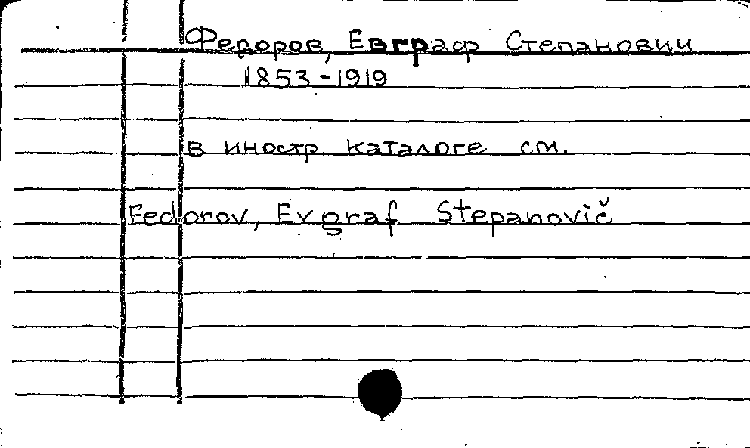 Федоров, Евграф Степанович
1853-1919
в иностр каталоге см.
Fedorov, Evgraf Stepanovič